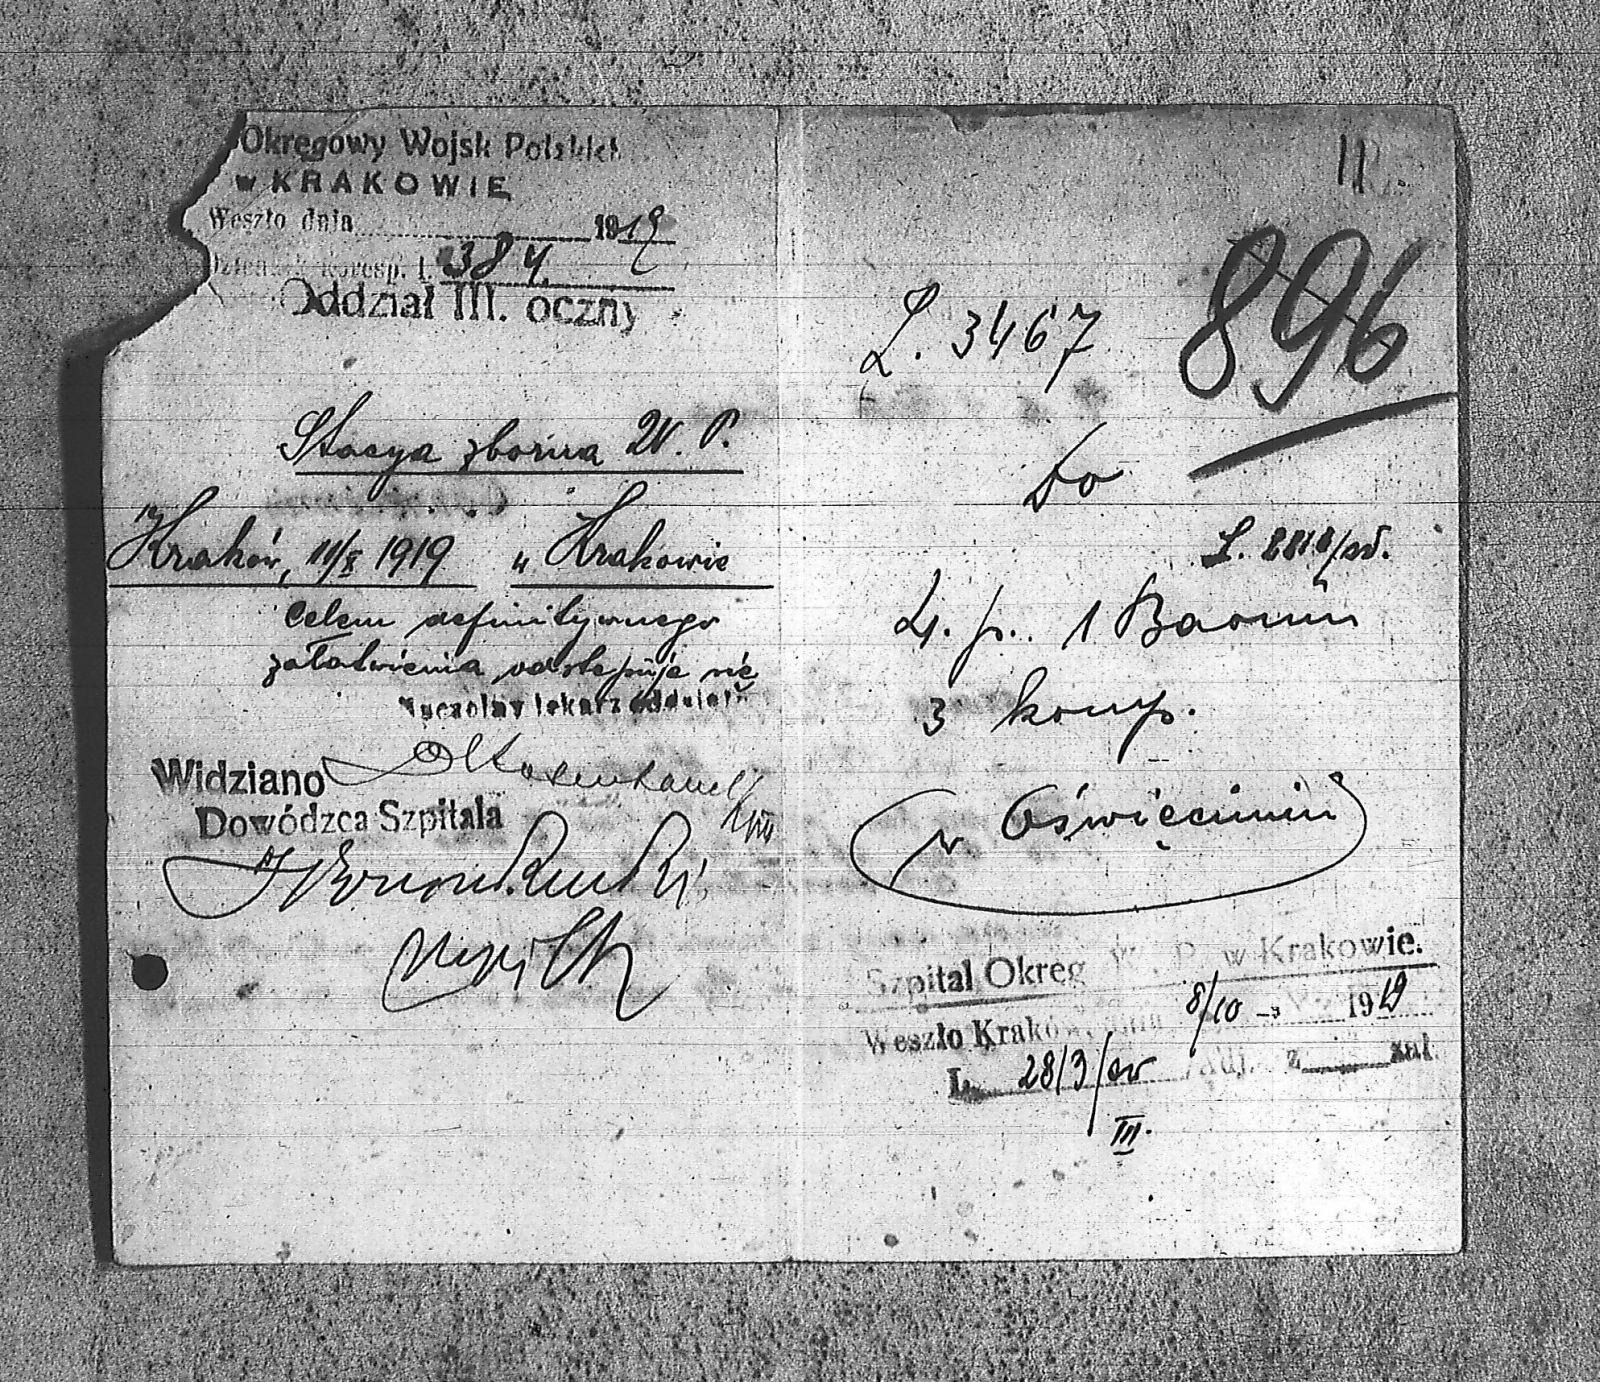 Okręgowy Wojsk Polskich
w KRAKOWIE
Weszło dnia 1919
koresp. l. 384
Oddział III. oczny
Stacya zborna W. P.
Kraków, 11/X 1919 w Krakowie
Celem definitywnego
załatwienia odstępuje się
Naczelny lekarz oddziału
Widziano
Dowódzca Szpitala
896
L. 3467
Do
4. p. 1 Baonu
3 komp.
w Oświęcimiu
Szpital Okręg W. P. w Krakowie.
Weszło Kraków, dnia 8/10 1919
L. 28/3/sv Adj. z zał.
III.